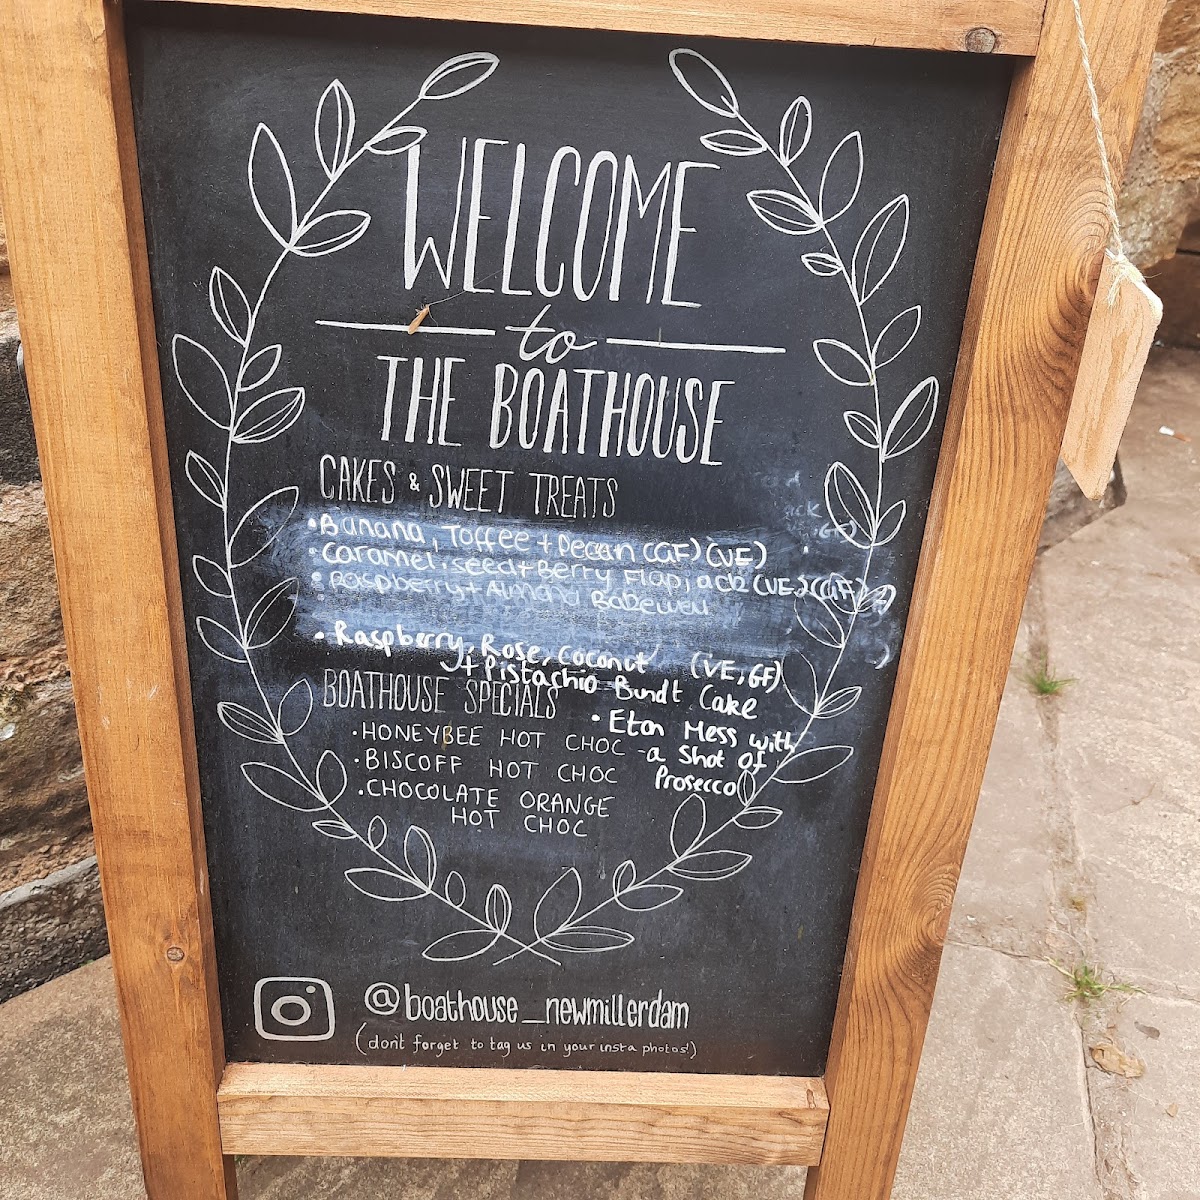 WELCOME
to
THE BOATHOUSE
CAKES & SWEET TREATS
• Banana, Toffee + Pecan (GF) (VE)
• Caramel, seed + Berry Flapjack (VE) (GF)
• Raspberry + Almond Bakewell
• Raspberry, Rose, Coconut (VE, GF)
+ Pistachio Bundt Cake
BOATHOUSE SPECIALS
• HONEYBEE HOT CHOC
• BISCOFF HOT CHOC
• CHOCOLATE ORANGE
HOT CHOC
• Eton Mess with
a Shot of
Prosecco
@boathouse_newmillerdam
(don't forget to tag us in your insta photos!)